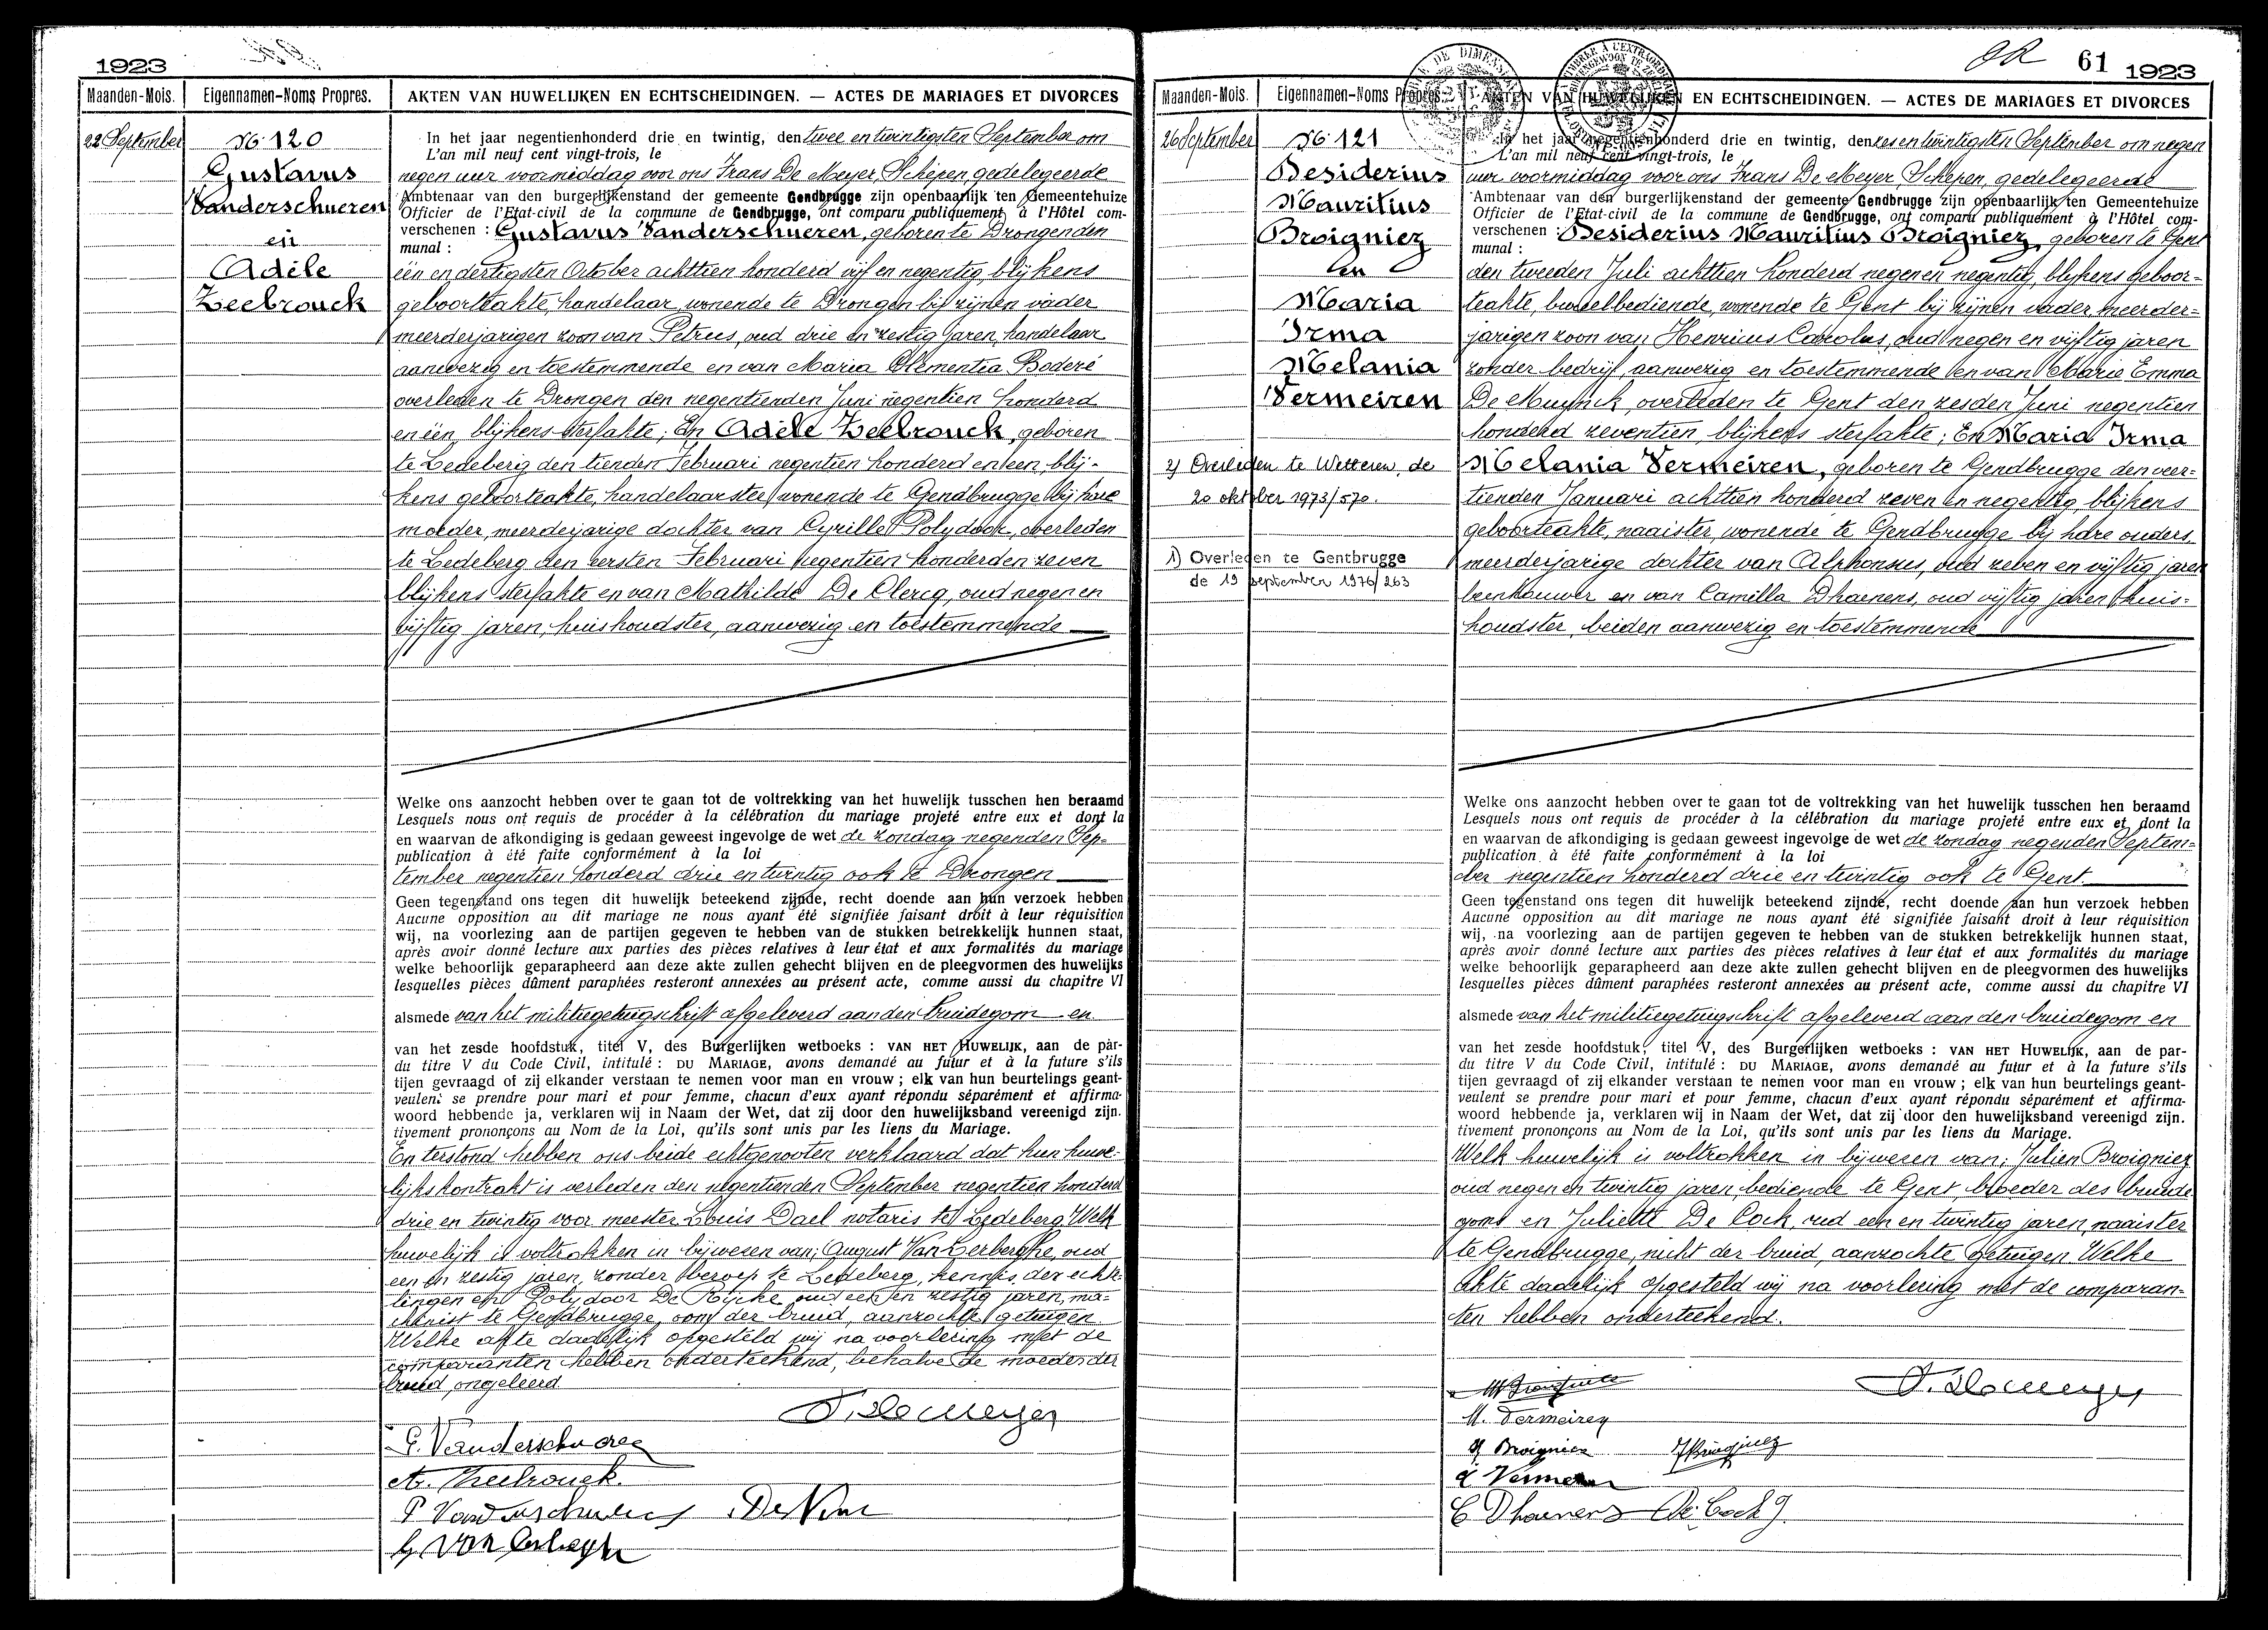 1923
Maanden-Mois. Eigennamen-Noms Propres. AKTEN VAN HUWELIJKEN EN ECHTSCHEIDINGEN. — ACTES DE MARIAGES ET DIVORCES
22 September
No 120
Gustavus
Vanderschueren
en
Adèle
Zeebrouck
In het jaar negentienhonderd drie en twintig, den twee en twintigsten September om
L'an mil neuf cent vingt-trois, le
negen uur voormiddag voor ons Frans De Meyer, Schepen, gedelegeerde
Ambtenaar van den burgerlijkenstand der gemeente Gendbrugge zijn openbaarlijk ten Gemeentehuize
Officier de l'Etat-civil de la commune de Gendbrugge, ont comparu publiquement à l'Hôtel com-
verschenen : Gustavus Vanderschueren, geboren te Drongen den
munal :
één en dertigsten October achttien honderd vijf en negentig, blijkens
geboorteakte, handelaar, wonende te Drongen bij zijnen vader
meerderjarigen zoon van Petrus, oud drie en zestig jaren, handelaar
aanwezig en toestemmende en van Maria Clementia Boderé
overleden te Drongen den negentienden Juni negentien honderd
en één, blijkens sterfakte; En Adèle Zeebrouck, geboren
te Ledeberg den tienden Februari negentien honderd en een, blij-
kens geboorteakte, handelaarster, wonende te Gendbrugge bij hare
moeder, meerderjarige dochter van Cyrille Polydoor, overleden
te Ledeberg den eersten Februari negentien honderd en zeven
blijkens sterfakte en van Mathilde De Clercq, oud negen en
vijftig jaren, huishoudster, aanwezig en toestemmende
Welke ons aanzocht hebben over te gaan tot de voltrekking van het huwelijk tusschen hen beraamd
Lesquels nous ont requis de procéder à la célébration du mariage projeté entre eux et dont la
en waarvan de afkondiging is gedaan geweest ingevolge de wet de zondag negenden Sep-
publication à été faite conformément à la loi
tember negentien honderd drie en twintig ook te Drongen
Geen tegenstand ons tegen dit huwelijk beteekend zijnde, recht doende aan hun verzoek hebben
Aucune opposition au dit mariage ne nous ayant été signifiée faisant droit à leur réquisition
wij, na voorlezing aan de partijen gegeven te hebben van de stukken betrekkelijk hunnen staat,
après avoir donné lecture aux parties des pièces relatives à leur état et aux formalités du mariage
welke behoorlijk geparapheerd aan deze akte zullen gehecht blijven en de pleegvormen des huwelijks
lesquelles pièces dûment paraphées resteront annexées au présent acte, comme aussi du chapitre VI
alsmede van het militiegetuigschrift afgeleverd aan den bruidegom en
van het zesde hoofdstuk, titel V, des Burgerlijken wetboeks : VAN HET HUWELIJK, aan de par-
du titre V du Code Civil, intitulé : DU MARIAGE, avons demandé au futur et à la future s'ils
tijen gevraagd of zij elkander verstaan te nemen voor man en vrouw ; elk van hun beurtelings geant-
veulent se prendre pour mari et pour femme, chacun d'eux ayant répondu séparément et affirma-
woord hebbende ja, verklaren wij in Naam der Wet, dat zij door den huwelijksband vereenigd zijn.
tivement prononçons au Nom de la Loi, qu'ils sont unis par les liens du Mariage.
En terstond hebben ons beide echtgenooten verklaard dat hun huwe-
lijkskontrakt is verleden den negentienden September negentien honderd
drie en twintig voor meester Louis Dael notaris te Ledeberg. Welk
huwelijk is voltrokken in bijwezen van; August Van Lerberghe, oud
een en zestig jaren, zonder beroep te Ledeberg, kennis der echte-
lingen en Polydoor De oud een en zestig jaren, ma-
chinist te Gendbrugge, oom der bruid, aanzochte getuigen
Welke akte dadelijk opgesteld wij na voorlezing met de
comparanten hebben onderteekend, behalve de moeder der
bruid, ongeleerd
F. De Meyer
G. Vanderschueren
A. Zeebrouck.
P Vanderschueren
A Van Lerberghe
61 1923
Maanden-Mois. Eigennamen-Noms Propres. AKTEN VAN HUWELIJKEN EN ECHTSCHEIDINGEN. — ACTES DE MARIAGES ET DIVORCES
26 September
No 121
Desiderius
Mauritius
Broigniez
en
Maria
Irma
Melania
Vermeiren
2) Overleden te Wetteren, de
20 oktober 1973/570.
1) Overleden te Gentbrugge
de 19 september 1976/263
In het jaar negentienhonderd drie en twintig, den zes en twintigsten September om negen
L'an mil neuf cent vingt-trois, le
uur voormiddag voor ons Frans De Meyer, Schepen, gedelegeerde
Ambtenaar van den burgerlijkenstand der gemeente Gendbrugge zijn openbaarlijk ten Gemeentehuize
Officier de l'Etat-civil de la commune de Gendbrugge, ont comparu publiquement à l'Hôtel com-
verschenen : Desiderius Mauritius Broigniez, geboren te Gent
munal :
den tweeden Juli achttien honderd negen en negentig, blijkens geboor-
teakte, bureelbediende, wonende te Gent bij zijnen vader, meerder-
jarigen zoon van Henricus Carolus, oud negen en vijftig jaren
zonder bedrijf, aanwezig en toestemmende en van Marie Emma
De Muynck, overleden te Gent den zesden Juni negentien
honderd zeventien, blijkens sterfakte; En Maria Irma
Melania Vermeiren, geboren te Gendbrugge den veer-
tienden Januari achttien honderd zeven en negentig, blijkens
geboorteakte, naaister, wonende te Gendbrugge bij hare ouders
meerderjarige dochter van Alphonsus, oud zeven en vijftig jaren
beenhouwer en van Camilla Dhaenens, oud vijftig jaren, huis-
houdster, beiden aanwezig en toestemmende
Welke ons aanzocht hebben over te gaan tot de voltrekking van het huwelijk tusschen hen beraamd
Lesquels nous ont requis de procéder à la célébration du mariage projeté entre eux et dont la
en waarvan de afkondiging is gedaan geweest ingevolge de wet de zondag negenden Septem-
publication à été faite conformément à la loi
ber negentien honderd drie en twintig ook te Gent.
Geen tegenstand ons tegen dit huwelijk beteekend zijnde, recht doende aan hun verzoek hebben
Aucune opposition au dit mariage ne nous ayant été signifiée faisant droit à leur réquisition
wij, na voorlezing aan de partijen gegeven te hebben van de stukken betrekkelijk hunnen staat,
après avoir donné lecture aux parties des pièces relatives à leur état et aux formalités du mariage
welke behoorlijk geparapheerd aan deze akte zullen gehecht blijven en de pleegvormen des huwelijks
lesquelles pièces dûment paraphées resteront annexées au présent acte, comme aussi du chapitre VI
alsmede van het militiegetuigschrift afgeleverd aan den bruidegom en
van het zesde hoofdstuk, titel V, des Burgerlijken wetboeks : VAN HET HUWELIJK, aan de par-
du titre V du Code Civil, intitulé : DU MARIAGE, avons demandé au futur et à la future s'ils
tijen gevraagd of zij elkander verstaan te nemen voor man en vrouw ; elk van hun beurtelings geant-
veulent se prendre pour mari et pour femme, chacun d'eux ayant répondu séparément et affirma-
woord hebbende ja, verklaren wij in Naam der Wet, dat zij door den huwelijksband vereenigd zijn.
tivement prononçons au Nom de la Loi, qu'ils sont unis par les liens du Mariage.
Welk huwelijk is voltrokken in bijwezen van; Julien Broigniez
oud negen en twintig jaren, bediende te Gent, broeder des bruide
goms en Juliette De Cock, oud een en twintig jaren, naaister
te Gendbrugge, nicht der bruid, aanzochte getuigen. Welke
akte dadelijk opgesteld wij na voorlezing met de comparan-
ten hebben onderteekend.
F. De Meyer
M. Vermeiren
H Broigniez J Broigniez
A Vermeiren
C Dhaenens De Cock J.